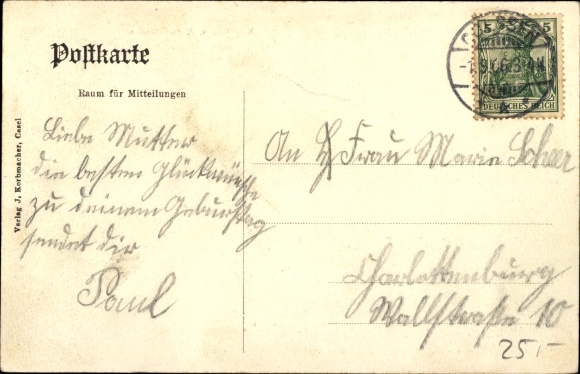 Postkarte
Raum für Mitteilungen
Verlag J. Korbmacher, Casel
Liebe Mutter
die besten Glückwünsche
zu deinem Geburtstag
sendet dir
Paul
5 5
DEUTSCHES REICH
An Frau Marie
Charlottenburg
Wallstraße 10
25,-